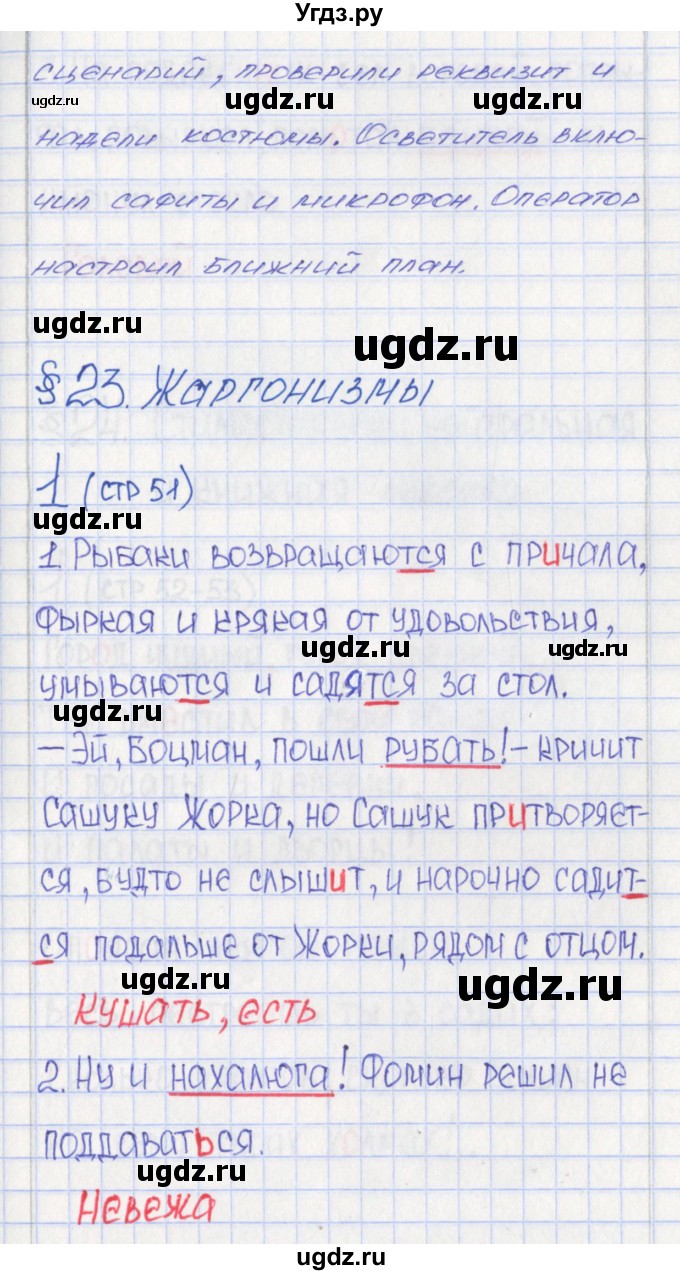 Угдз.ру
сценарий, проверили реквизит и
ugdz.ru ugdz.ru ugdz.ru
надели костюмы. Осветитель вклю-
чил сафиты и микрофон. Оператор
настроил ближний план.
ugdz.ru
ugdz.ru
§ 23. Жаргонизмы
1 (стр 51)
1. Рыбаки возвращаются с причала,
фыркая и крякая от удовольствия,
ugdz.ru ugdz.ru
умываются и садятся за стол.
– Эй, Боцман, пошли рубать! – кричит
Сашуку Жорка, но Сашук притворяет-
ся, будто не слышит, и нарочно садит-
ся подальше от Жорки, рядом с отцом.
ugdz.ru ugdz.ru
кушать, есть
2. Ну и нахалюга! Фомин решил не
поддаваться.
ugdz.ru
Невежа
ugdz.ru